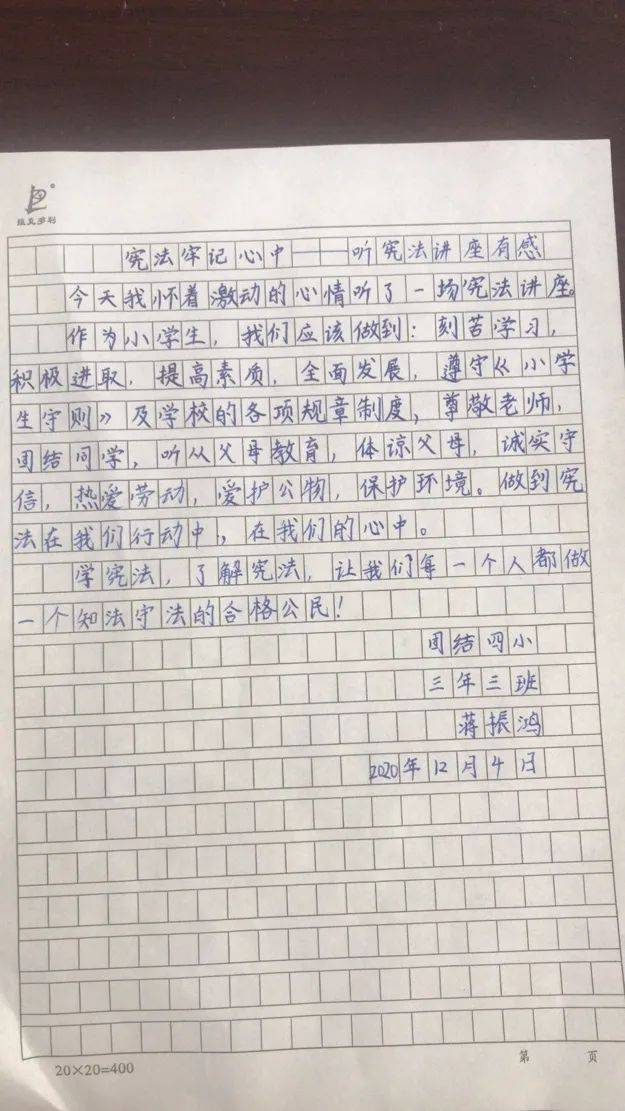 宪法牢记心中——听宪法讲座有感
今天我怀着激动的心情听了一场宪法讲座。
作为小学生，我们应该做到：刻苦学习，
积极进取，提高素质，全面发展，遵守《小学
生守则》及学校的各项规章制度，尊敬老师，
团结同学，听从父母教育，体谅父母，诚实守
信，热爱劳动，爱护公物，保护环境。做到宪
法在我们行动中，在我们的心中。
学宪法，了解宪法，让我们每一个人都做
一个知法守法的合格公民！
团结四小
三年三班
蒋振鸿
2020年12月4日
20×20=400
第 页